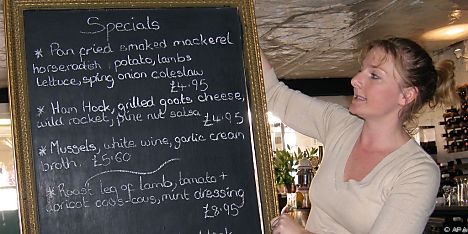 Specials
* Pan fried smoked mackerel
horseradish potato, lambs
lettuce, spring onion coleslaw
£4.95
* Ham Hock, grilled goats cheese,
wild rocket, pine nut salsa £4.95
* Mussels, white wine, garlic cream
broth. £5.60
* Roast leg of lamb, tomato +
apricot cous-cous, mint dressing
£8.95
© APA